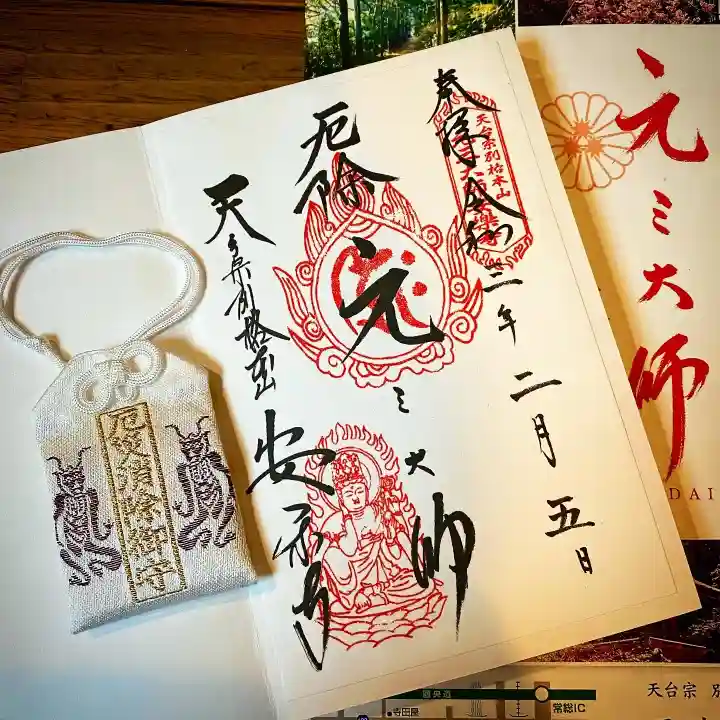 奉拝 令和三年二月五日
天台宗別格本山
厄除
元三大師
天台宗別格本山
安楽寺
厄災消除御守
元三大師
DAI
天台宗 別
圏央道
常総IC
寺田屋